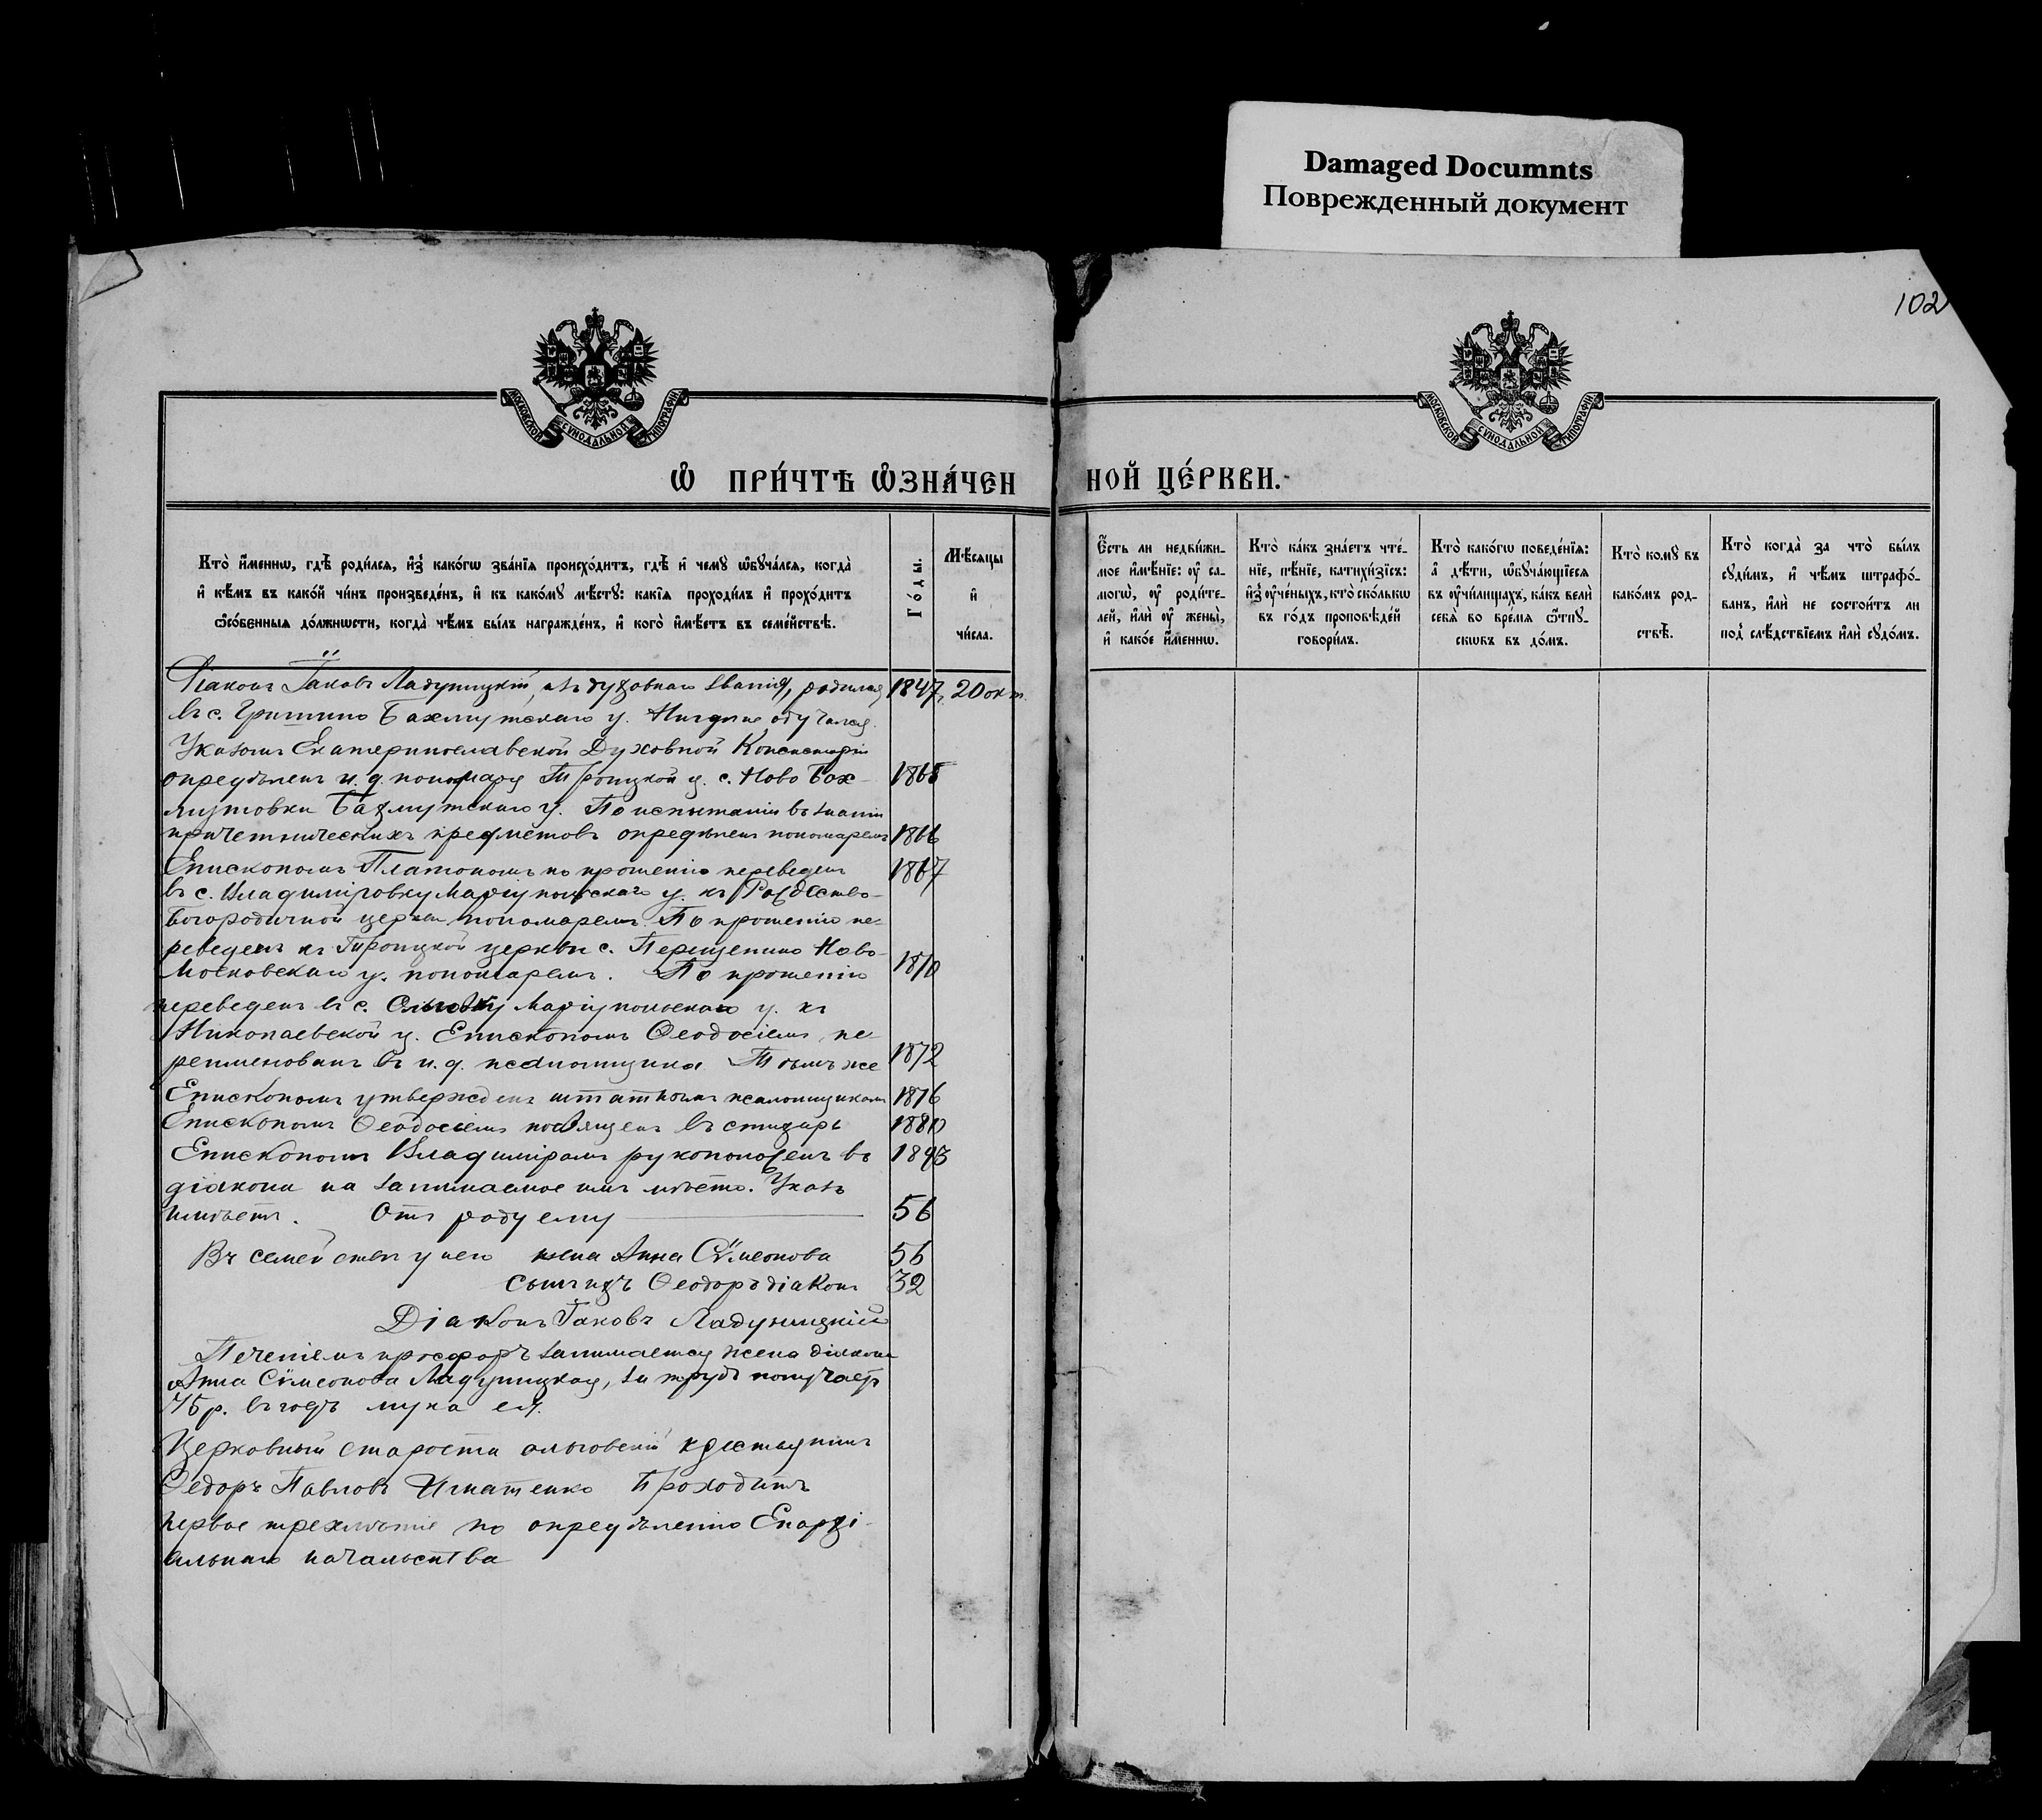 Damaged Documnts
Поврежденный документ
102
МОСКОВСКОЙ СѴНОДАЛЬНОЙ ТИПОГРАФІИ
МОСКОВСКОЙ СѴНОДАЛЬНОЙ ТИПОГРАФІИ
Ѽ ПРИ́ЧТѢ Ѽ҆ЗНА́ЧЕННОЙ ЦЕ́РКВИ.
Кто̀ и҆́меннѡ, гдѣ̀ роди́лся, и҆з̾ како́гѡ зва́нїя происхо́дитъ, гдѣ̀ и҆ чемꙋ̀ ѡ҆бꙋча́лся, когда̀
и҆ кѣ́мъ въ како́й чи́нъ произведе́нъ, и҆ къ како́мꙋ мѣ́стꙋ: какі̑я проходи́лъ и҆ прохо́дитъ
ѻ҆со́бенныя до́лжнѡсти, когда̀ чѣ́мъ бы́лъ награжде́нъ, и҆ кого̀ и҆мѣ́етъ въ семе́йствѣ.
Го́ды.
Мѣ́сяцы
и҆
чи́сла.
Є҆́сть ли недви́жи-
мое и҆мѣ́нїе: ᲂу҆ са-
могѡ̀, ᲂу҆ роди́те-
лей, и҆лѝ ᲂу҆ жены̀,
и҆ како́е и҆́меннѡ.
Кто̀ ка́къ зна́етъ чте́-
нїе, пѣ́нїе, катихи́зїсъ:
и҆з̾ ᲂу҆че́ныхъ, кто̀ ско́лькѡ
въ го́дъ проповѣ́дей
говори́лъ.
Кто̀ како́гѡ поведе́нїя:
а҆ дѣ́ти, ѡ҆бꙋча́ющїеся
въ ᲂу҆чи́лищахъ, ка́къ велѝ
себѧ̀ во время ѿпꙋ-
скѡвъ въ до́мъ.
Кто̀ комꙋ̀ въ
како́мъ род-
ствѣ̀.
Кто̀ когда̀ за что̀ бы́лъ
сꙋди́мъ, и҆ чѣ́мъ штрафо́-
ванъ, и҆лѝ не состои́тъ ли
под̾ слѣ́дствїемъ и҆лѝ сꙋдо́мъ.
Діаконъ Іаковъ Ладуницкій, изъ духовнаго званія, родился 1847, 20 окт.
въ с. Гришино Бахмутскаго у. Нигдѣ не обучался.
Указомъ Екатеринославской Духовной Консисторіи
опредѣленъ и. д. пономаря Троицкой ц. с. Ново Бах- 1865
мутовки Бахмутскаго у. По испытаніи въ знаніи
причетническихъ предметовъ опредѣленъ пономаремъ 1866
Епископомъ Платономъ по прошенію переведенъ 1867
въ с. Владиміровку Маріупольскаго у. къ Рождество-
богородичной церкви пономаремъ. По прошенію пе-
реведенъ къ Троицкой церкви с. Перещепино Ново-
Московскаго у. пономаремъ. По прошенію 1870
переведенъ въ с. Ольговку Маріупольскаго у. къ
Николаевской ц. Епископомъ Ѳеодосіемъ пе-
реименованъ въ и. д. псаломщика Тѣмъ же 1872
Епископомъ утвержденъ штатнымъ псаломщикомъ 1876
Епископомъ Ѳеодосіемъ посвященъ въ стихарь 1880
Епископомъ Владиміромъ рукоположенъ въ 1893
діакона на занимаемое имъ мѣсто. Указъ
имѣетъ. Отъ роду ему 56
Въ семействѣ у него жена Анна Сѵмеонова 56
сынъ ихъ Ѳеодоръ діаконъ 32
Діаконъ Іаковъ Ладуницкій
Печеніемъ просфоръ занимается жена діакона
Анна Сѵмеонова Ладуницкая, за трудъ получаетъ
75 р. въ годъ мука ея.
Церковный староста ольговскій крестьянинъ
Ѳедоръ Павловъ Игнатенко Проходитъ
первое трехлѣтіе по опредѣленію Епархі-
альнаго начальства